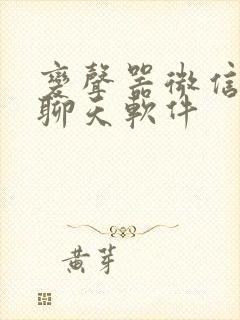 變聲器微信
聊天軟件
黃芽